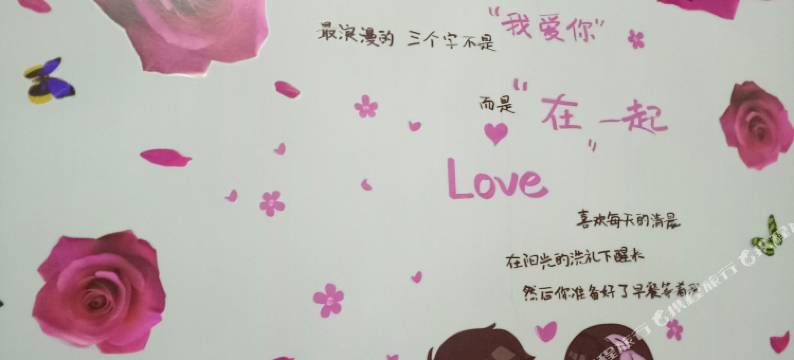 最浪漫的 三个字不是“我爱你”
而是“在一起”
Love
喜欢每天的清晨
在阳光的洗礼下醒来
然后你准备好了早餐等着我
携程旅行
携程旅行